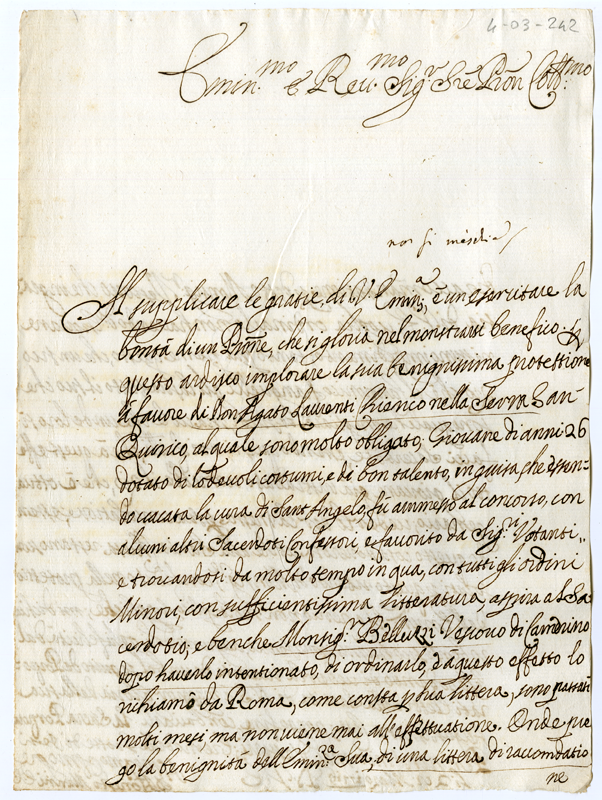 4-03-242
Emin.mo e Reu.mo Sig.r Sre Pron Coll.mo
non si méschia
Il supplicare le gratie di V. Emin.a, è un esercitare la
bontà di un Prone, che si gloria nel monstrarsi benefico. Per
questo ardisco implorare la sua benignissima protettione
à favore di Don Agato Laurenti Chierico nella Serra San
Quirico, al quale sono molto obligato, Giouane di anni 26
dotato di lodeuoli costumi, e di bon talento, in guisa, che essen-
do uacata la cura di Sant Angelo, fù ammesso al concorso, con
alcuni altri Sacerdoti Confessori, e fauorito da Sig.ri Votanti..
e trouandosi da molto tempo in qua, con tutti gli ordini
Minori, con sufficientissima litteratura, aspira al Sa-
cerdotio; e benche Monsig.r Belluzzi Vescouo di Camerino
dopo hauerlo intentionato, di ordinarlo, e à questo effetto lo
richiamò da Roma, come consta p sua littera, sono passati
molti mesi, ma non uiene mai all'effettuatione. Onde pre
go la benignità dell'Emin.za Sua, di una littera di raccomdatio
ne